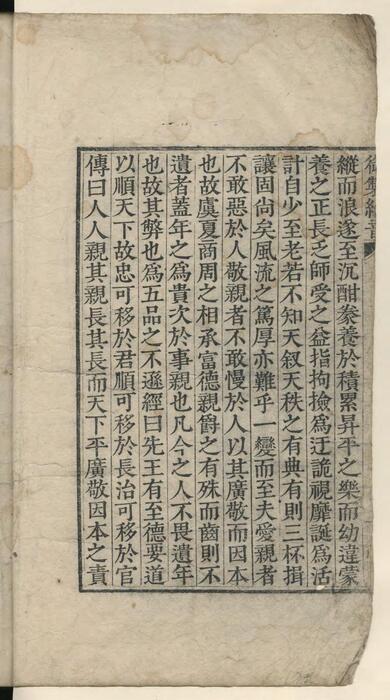 縱而浪遂至沉酣豢養於積累昇平之樂而幼違蒙
養之正長乏師受之益指拘撿為迂詭視靡誕為活
計自少至老若不知天叙天秩之有典有則三杯揖
讓固尚矣風流之篤厚亦難乎一變而至夫愛親者
不敢惡於人敬親者不敢慢於人以其廣敬而因本
也故虞夏商周之相承富德親爵之有殊而齒則不
遺者蓋年之為貴次於事親也凡今之人不畏遺年
也故其弊也為五品之不遜經曰先王有至德要道
以順天下故忠可移於君順可移於長治可移於官
傳曰人人親其親長其長而天下平廣敬因本之責